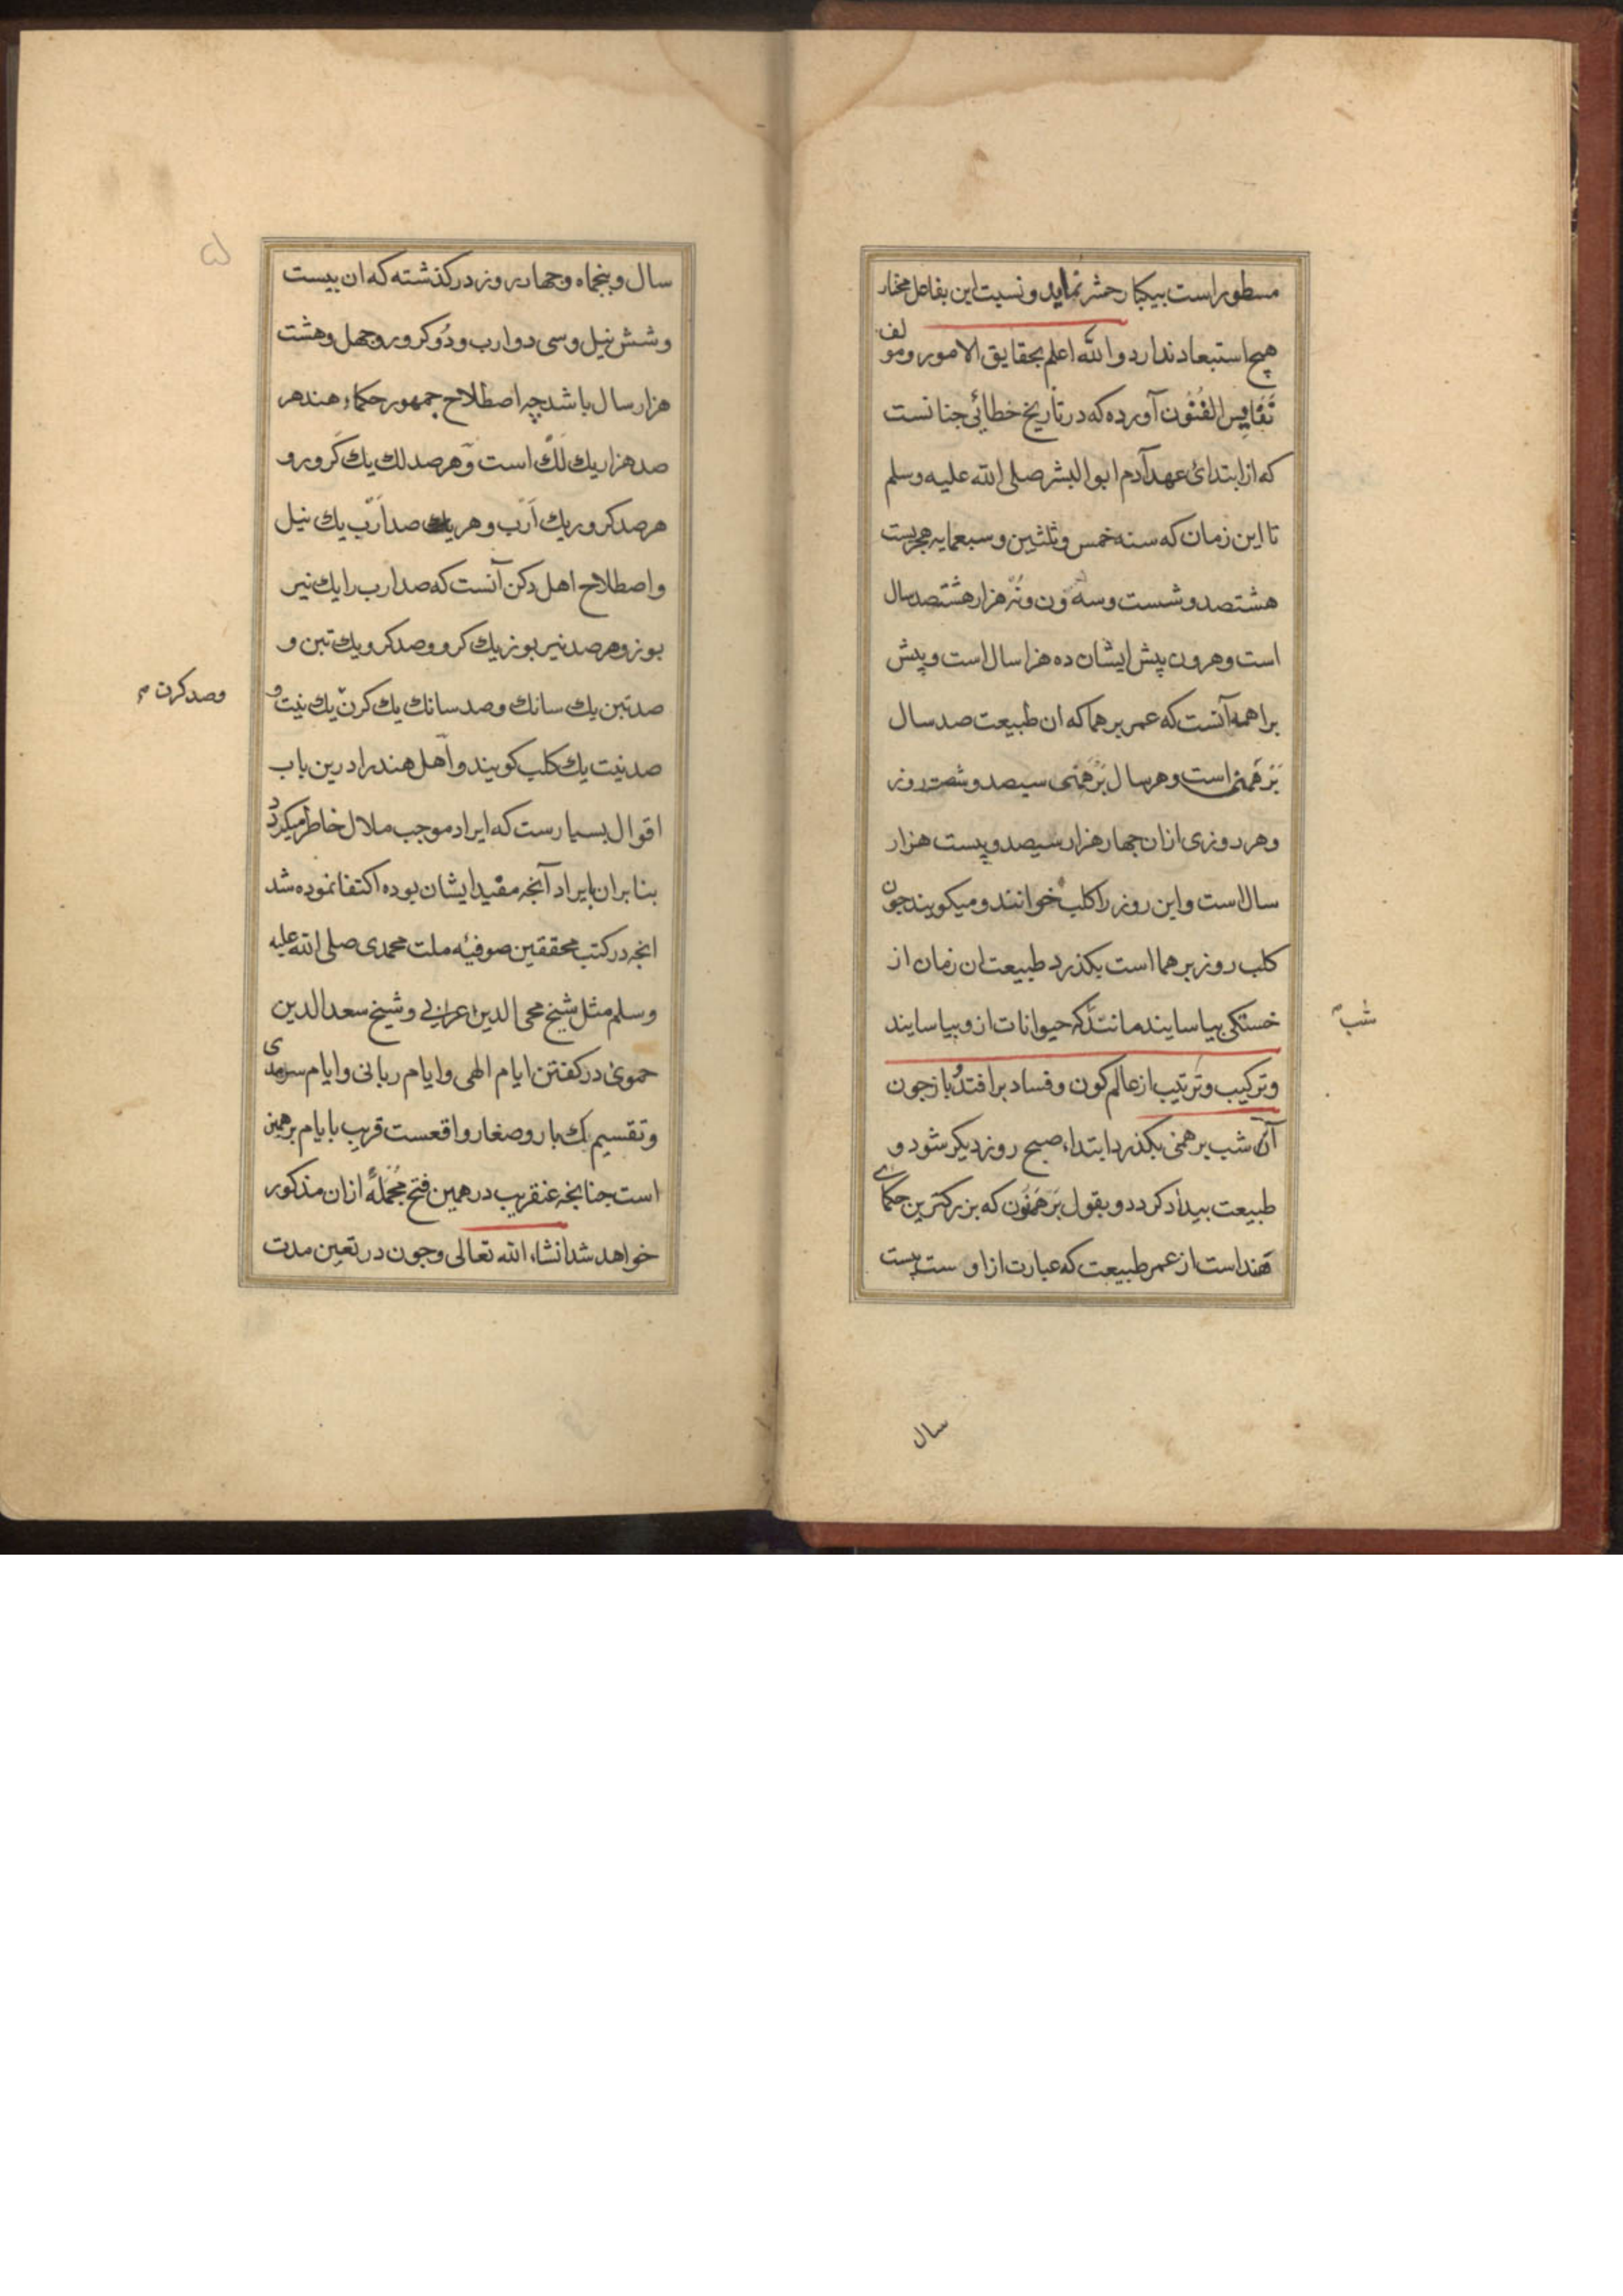 مسطور است بیکبار حشر نماید و نسبت این بفاعل مختار
هیچ استبعاد ندارد و الله اعلم بحقایق الامور و مولف
نفایس الفنون آورده که در تاریخ خطائی جنانست
که از ابتدای عهد آدم ابوالبشر صلی الله علیه وسلم
تا این زمان که سنه خمس و ثلثین و سبعمایه هجریست
هشتصد و شست و سه ون و نه هزار هشتصد سال
است و هر ون پیش ایشان ده هزا سال است و پیش
براهمه آنست که عمر برهما که ان طبیعت صد سال
برهمنی است و هر سال برهمنی سیصد و شصت روز
و هر روزی ازان جهار هزار سیصد و بیست هزار
سال است و این روز را کلپ خوانند و میکویند جون
کلب روز برهما است بکذرد طبیعت ان زمان از
خستکی بیاسایند مانند که حیوانات از و بیاسایند
شب
و ترکیب و ترتیب از عالم کون و فساد برافتد و باز جون
آن شب برهمنی بکذرد ابتداء صبح روز دیکر شود و
طبیعت بیدار کردد و بقول برهمنون که بزرکترین حکمای
هند است از عمر طبیعت که عبارت از اوست بیست
سال
سال و پنجاه و جهار روز در کذشته که ان بیست
و شش نیل و سی دو ارب و دو کرور و جهل و هشت
هزار سال باشد چه اصطلاح جمهور حکماء هند هر
صد هزار یك لك است و هر صد لك یك کرور و
هر صد کرور یك ارب و هر یك صد ارب یك نیل
و اصطلاح اهل دکن آنست که صد ارب را یك نیر
بوز و هر صد نیر بوز یك کرو و صد کرو یك تبن و
صد تبن یك سانك و صد سانك یك کرن یك نیت و
وصد کرن
صد نیت یك کلب کویند و اهل هند را درین باب
اقوال بسیارست که ایراد موجب ملال خاطر میکردد
بنا بران بایراد آنجه مفید ایشان بوده اکتفا نموده شد
انجه در کتب محققین صوفیه ملت محمدی صلی الله علیه
وسلم مثل شیخ محی الدین اعرابی و شیخ سعد الدین
حموی در کفتن ایام الهی و ایام ربانی و ایام سرمدی
و تقسیم بکبار و صغار واقعست قریب بایام برهمن
است جنانجه عنقریب در همین فتح مجمله ازان مذکور
خواهد شد انشاء الله تعالی و جون در تعین مدت